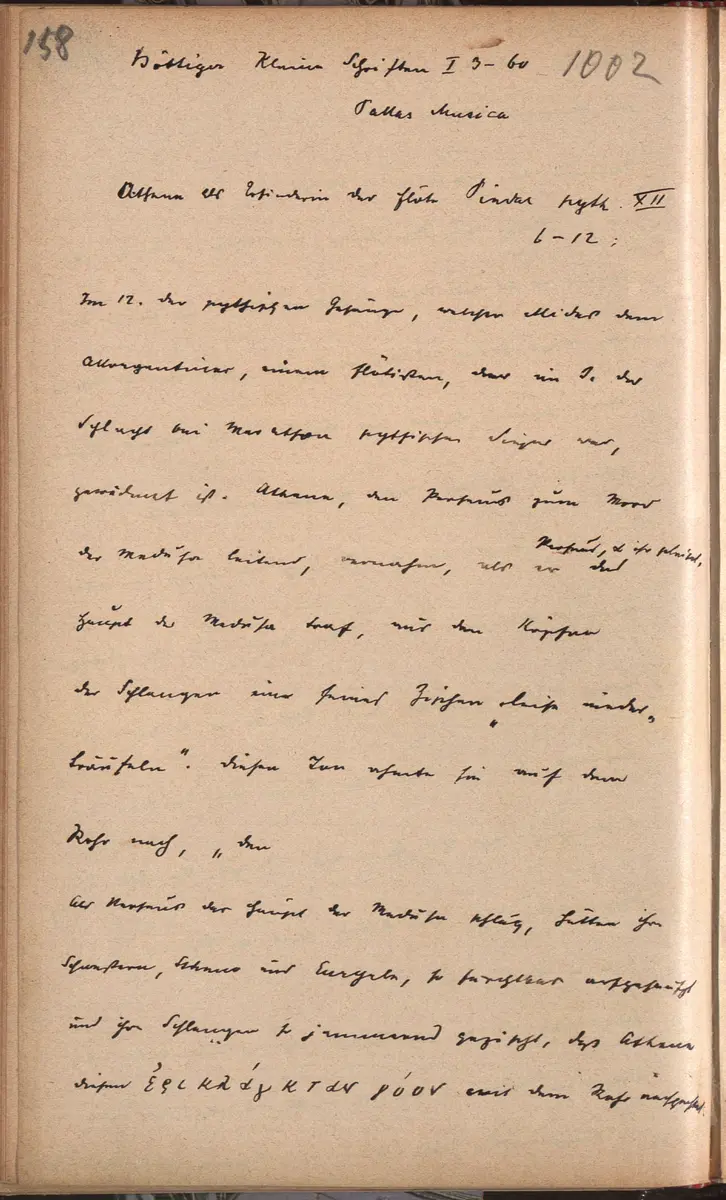 158
Böttiger Kleine Schriften I 3–60 1002
Pallas Musica
Athene als Erfinderin der Flöte Pindar pyth. XII
6–12:
Im 12. der pythischen Gesänge, welcher Midas dem
einem Flötisten, der im J. der
Schlacht bei Marathon pythischer Sieger war,
gewidmet ist. Athene, den Perseus zum Mord
Perseus,
der Medusa leitend, vernahm, als er das
Haupt der Medusa traf, aus den Köpfen
der Schlangen ein feines Zischen „leise nieder-
träufeln“. Diesen Ton ahmte sie auf dem
Rohr nach, „den
Als Perseus das Haupt der Medusa schlug, hätten ihre
Schwestern, Stheno und Euryale, so furchtbar aufgeheult
und ihre Schlangen so jammernd gezischt, daß Athene
diesen ἐρικλάγκταν γόον mit dem Rohr nachgeahmt.